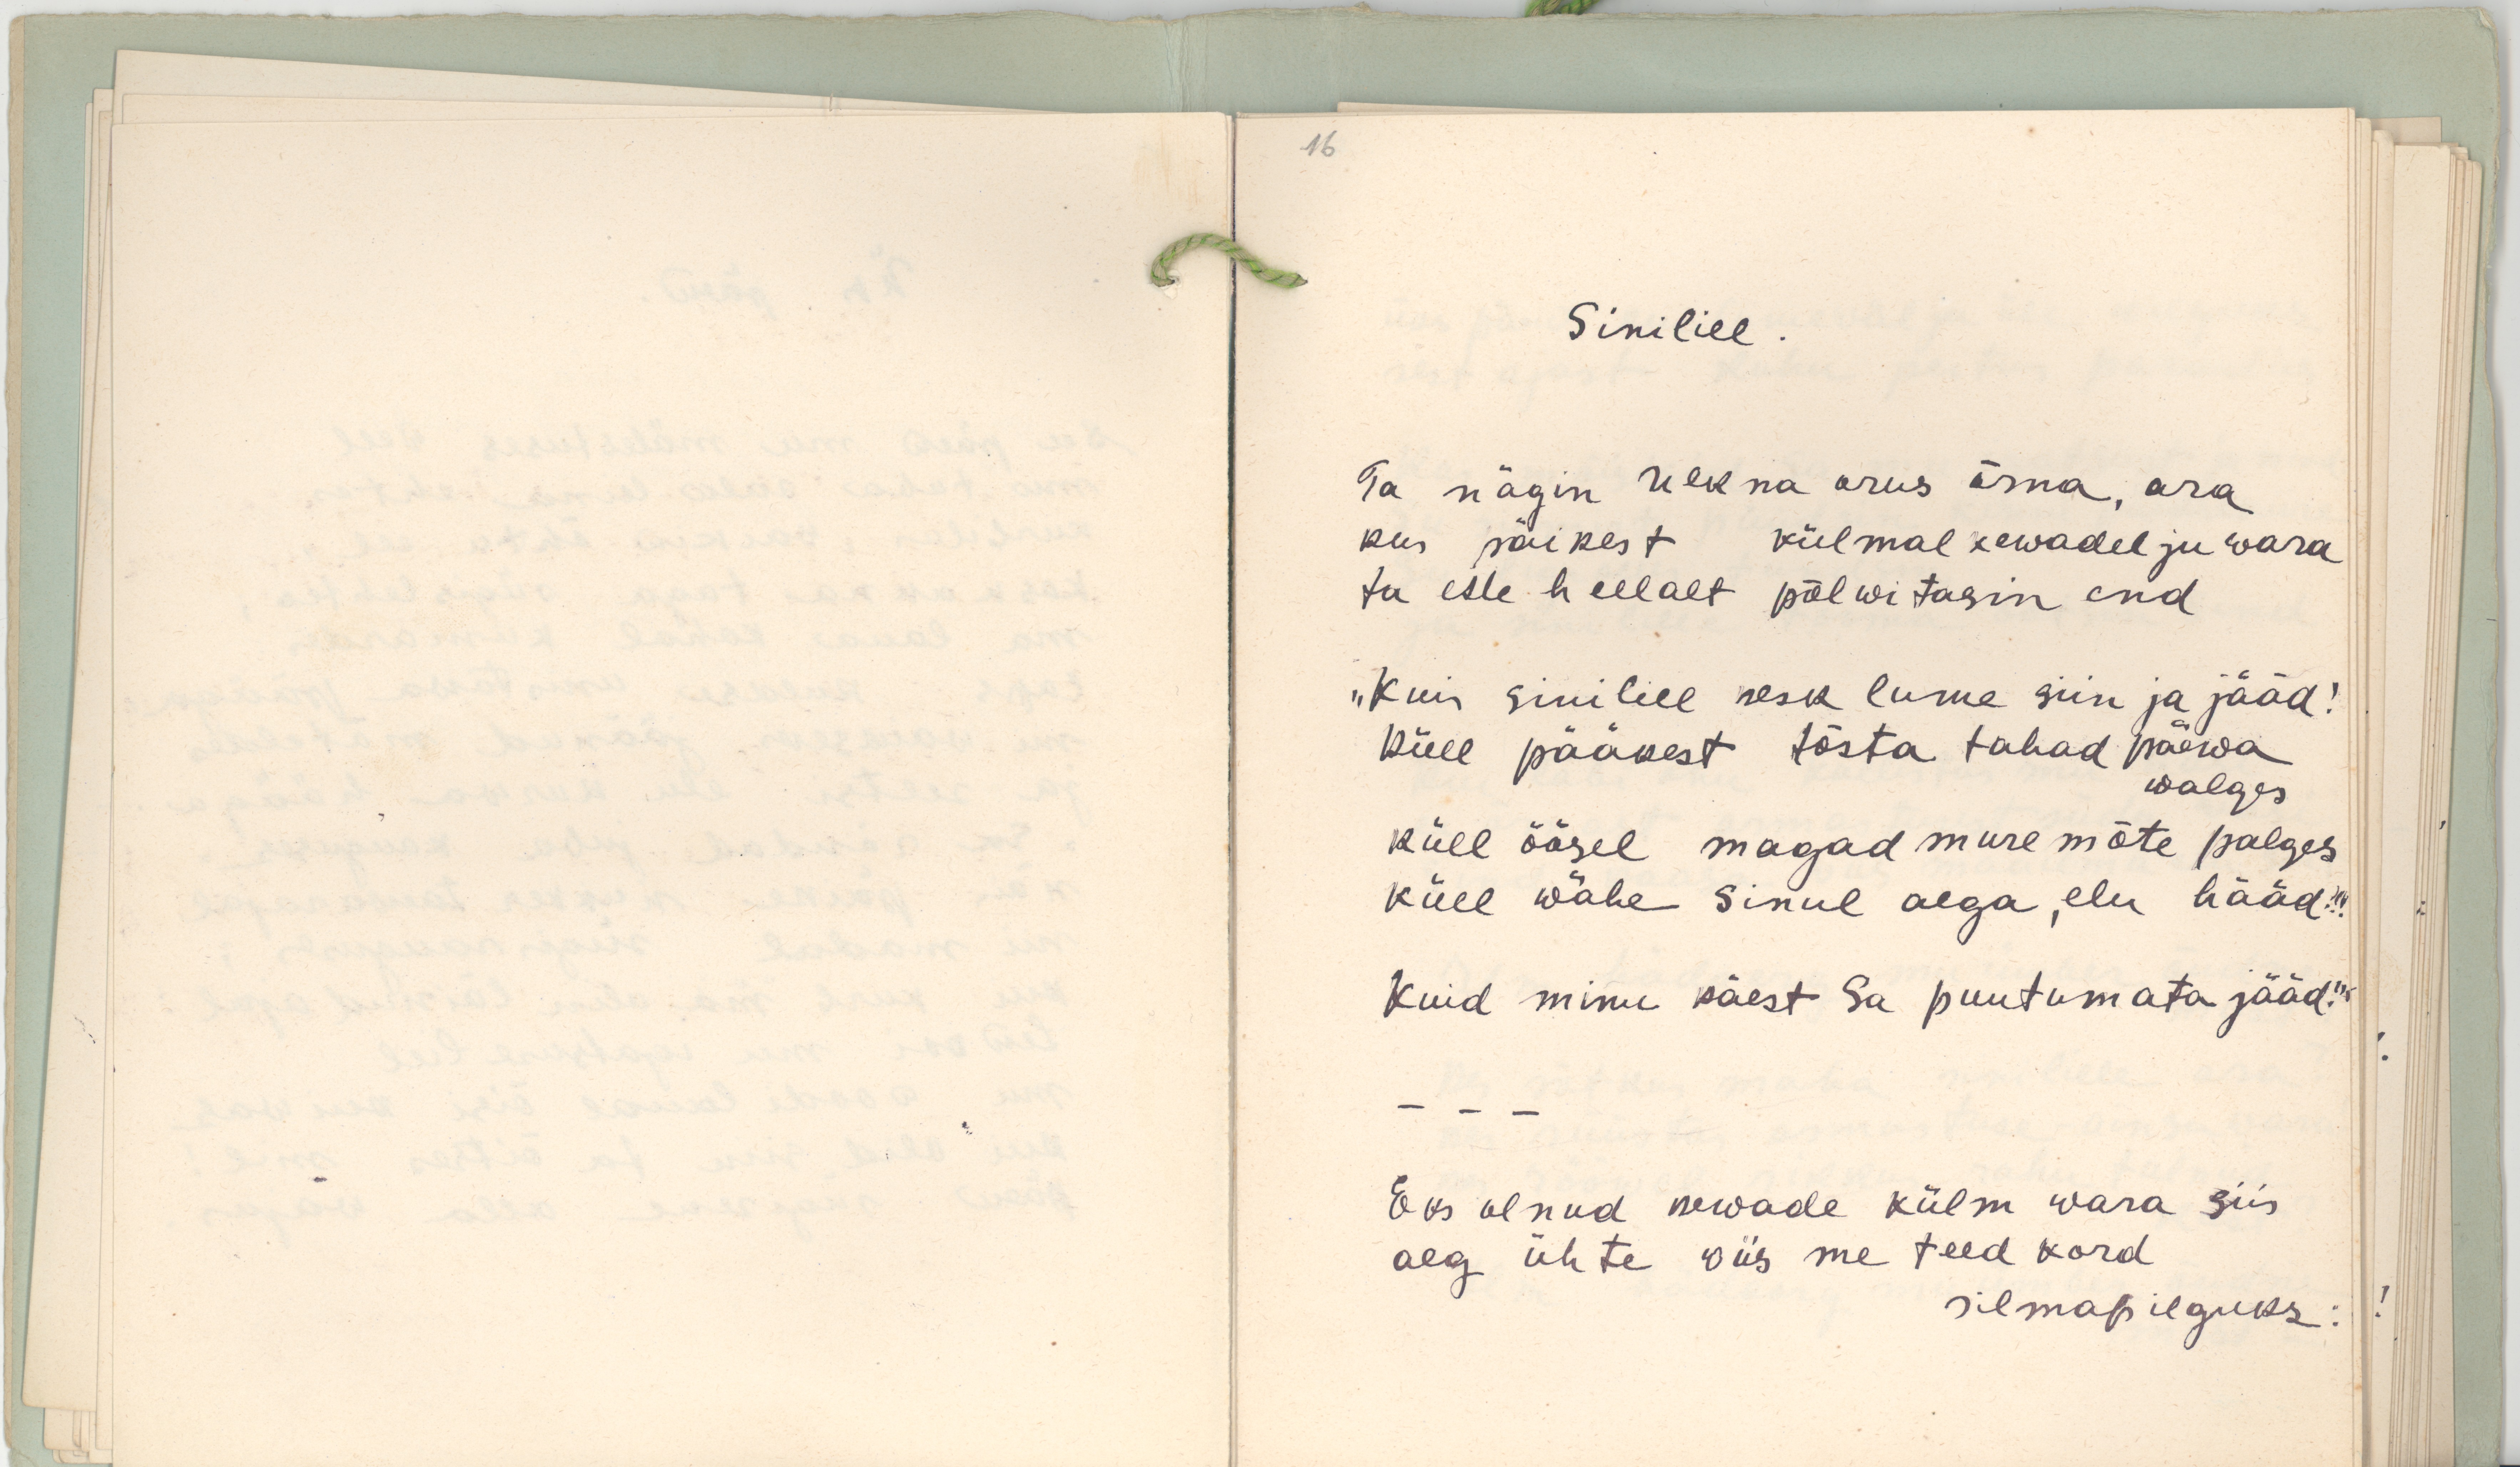 16
Sinilill.
Ta nägin nukna orus õrna, ara
kus päikest külmal kewadel ju wara
ta ette hellalt põlwitasin end
„Kuis sinilill kesk lume siin ja jääd!
Küll pääkest tõsta tahad päewa
walges
küll öösel magad mure mõte palges
küll wähe sinul aega, elu hääd!!"
Kuid minu käest Sa puutumata jääd!"
- - -
Eks olnud kewade külm wara siis
aeg ühte wiis me teed kord
silmapilguks: